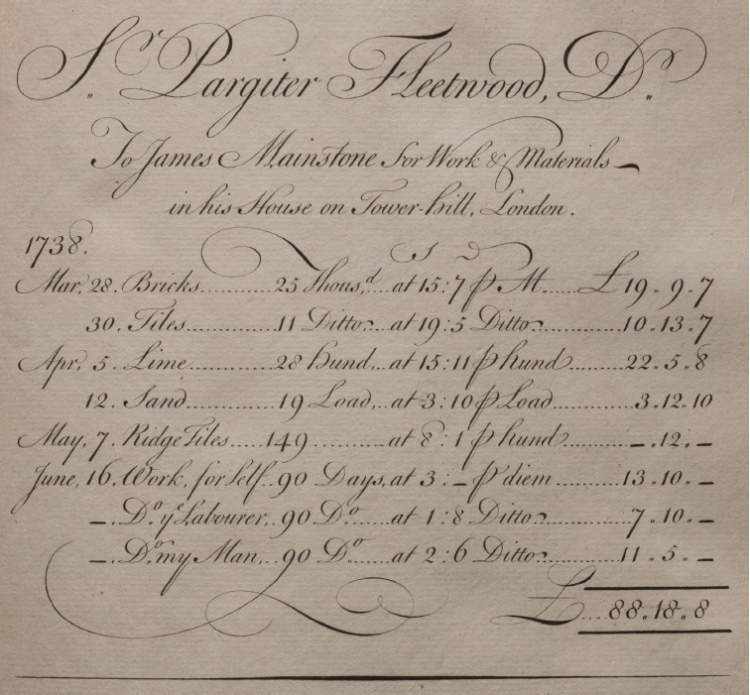 Sr. Pargiter Fleetwood, Dr.
To James Mainstone for Work & Materials
in his House on Tower-hill, London.
1738.
S D
Mar, 28. Bricks..........25 Thous,d..at 15:7 p M......£19.9.7
30. Tiles..............11 Ditto...at 19:5 Ditto..........10.13.7
Apr, 5. Lime..............28 hund...at 15:11 p hund.........22.5.8
12. Sand..............19 Load,..at 3:10 p Load..........3.12.10
May, 7. Ridge Tiles....149............at 8:1 p hund..........–.12.–
June, 16. Work, for self..90 Days, at 3:– p diem..........13.10.–
–. Do. ye Labourer, 90 Do.....at 1:8 Ditto..........7.10.–
–. Do. my Man,...90 Do.....at 2:6 Ditto..........11.5.–
£...88.18.8